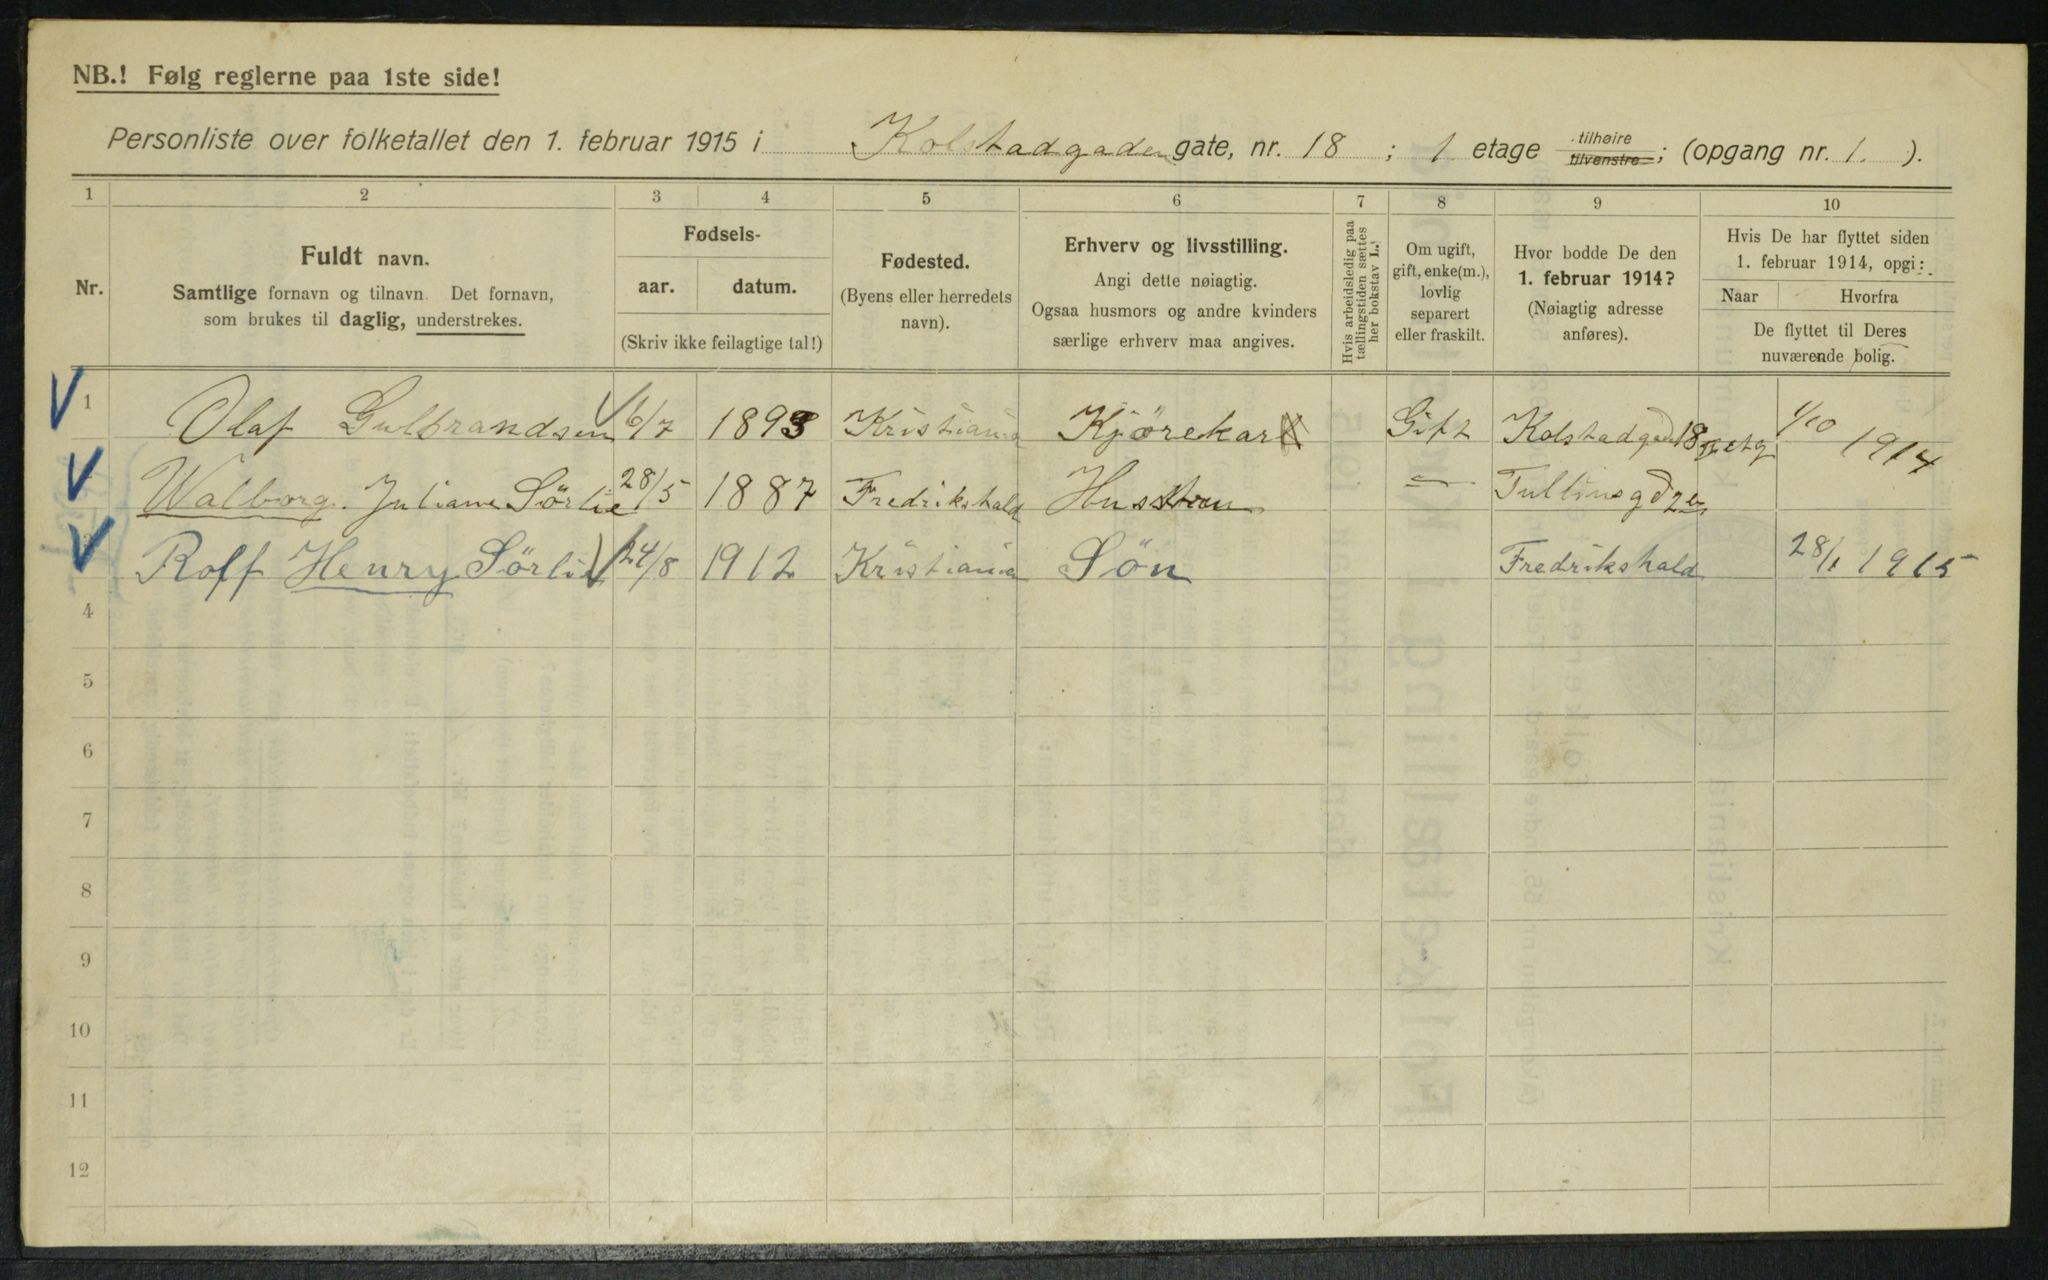 NB.! Følg reglerne paa 1ste side!
Personliste over folketallet den 1. februar 1915 i Kolstadgaden gate, nr. 18 ; 1 etage tilhøire tilvenstre ; (opgang nr. 1. ).
1 2 3 4 5 6 7 8 9 10
Nr.
Fuldt navn.
Samtlige fornavn og tilnavn. Det fornavn,
som brukes til daglig, understrekes.
Fødsels-
aar. datum.
(Skriv ikke feilagtige tal!)
Fødested.
(Byens eller herredets
navn).
Erhverv og livsstilling.
Angi dette nøiagtig.
Ogsaa husmors og andre kvinders
særlige erhverv maa angives.
Hvis arbeidsledig paa
tællingstiden sættes
her bokstav L.!
Om ugift,
gift, enke(m.),
lovlig
separert
eller fraskilt.
Hvor bodde De den
1. februar 1914?
(Nøiagtig adresse
anføres).
Hvis De har flyttet siden
1. februar 1914, opgi:
Naar Hvorfra
De flyttet til Deres
nuværende bolig.
1 Olaf Gulbrandsen 6/7 1893 Kristiania Kjørekar Gift Kolstadgad 18 etg 1/10 1914
Walborg. Juliane Sørlie 28/5 1887 Fredrikshald Hustru — Tullinsgd
Rolf Henry Sørlie 24/8 1912 Kristiania Søn Fredrikshald 28/1 1915
4
5
6
7
8
9
10
11
12